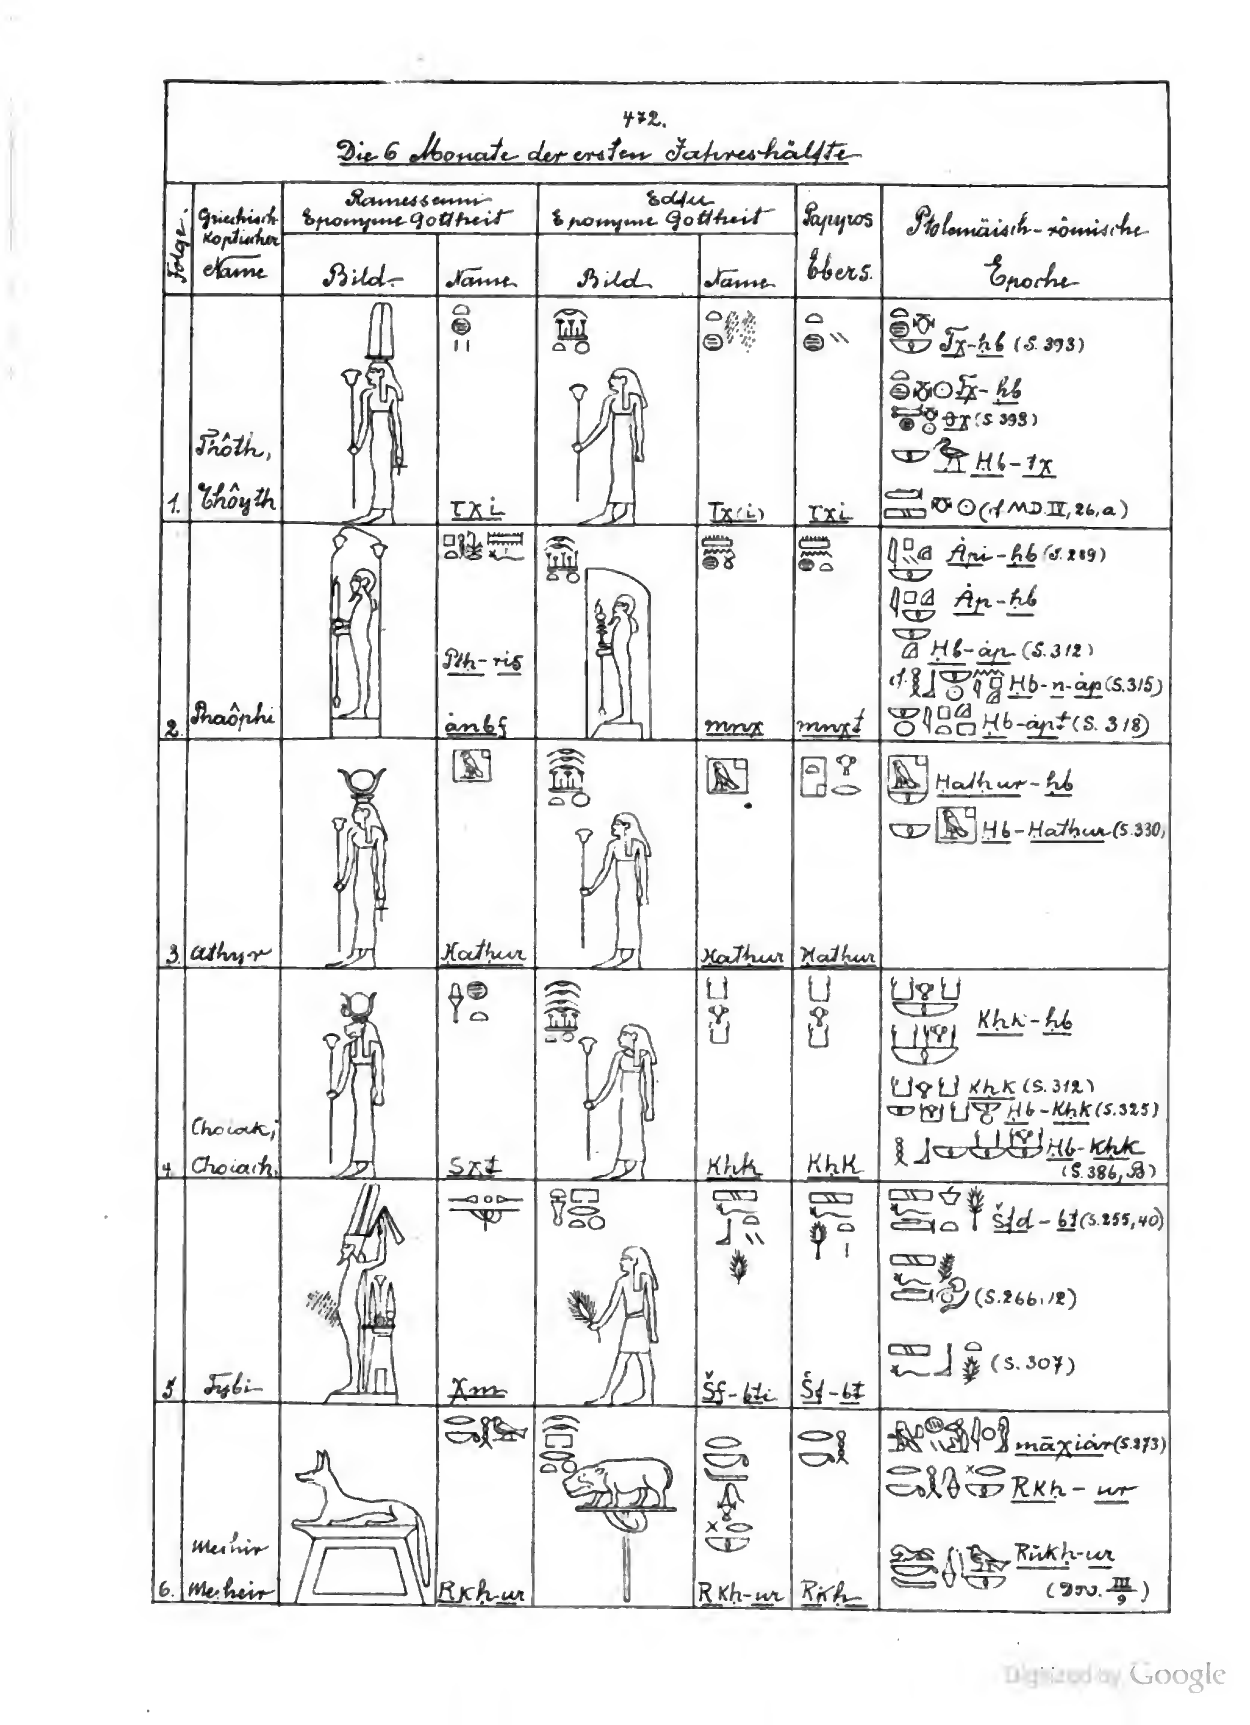 472.
Die 6 Monate der ersten Jahreshälfte
Folge
Griechisch
koptischer
Name
Ramesseum
Eponyme Gottheit
Bild
Name
Edfu
Eponyme Gottheit
Bild
Name
Papyros
Ebers.
Ptolemäisch-römische
Epoche
1.
Thôth,
Thôyth
Txi
Tx(i)
Txi
Tx-ḥb (S. 393)
Tx-ḥb
(S. 393)
Ḥb-tx
(cf MD. IV, 26, a)
2.
Phaôphi
Ptḥ-ris
ȧnbf
mnx
mnxt
Ȧpi-ḥb (S. 289)
Ȧp-ḥb
Ḥb-ȧp (S. 312)
cf. Ḥb-n-ȧp (S. 315)
Ḥb-ȧpt (S. 318)
3.
Athyr
Ḥatḥur
Ḥatḥur
Ḥatḥur
Ḥatḥur-ḥb
Ḥb-Ḥatḥur (S. 330,
4.
Choiak,
Choiach.
Sxt
Kḥk
Kḥk
Kḥk-ḥb
Kḥk (S. 312)
Ḥb-Kḥk (S. 325)
Ḥb-Kḥk
(S. 386, B)
5
Tybi
Xm
Šf-bti
Šf-bt
Šfd-bt (S. 255, 40)
(S. 266, 12)
(S. 307)
6.
Mechir
Mecheir
Rkḥ-ur
Rkḥ-ur
Rkḥ
māxiȧr (S. 273)
Rkḥ-ur
Rukḥ-ur
(III
9)
Digitized by Google